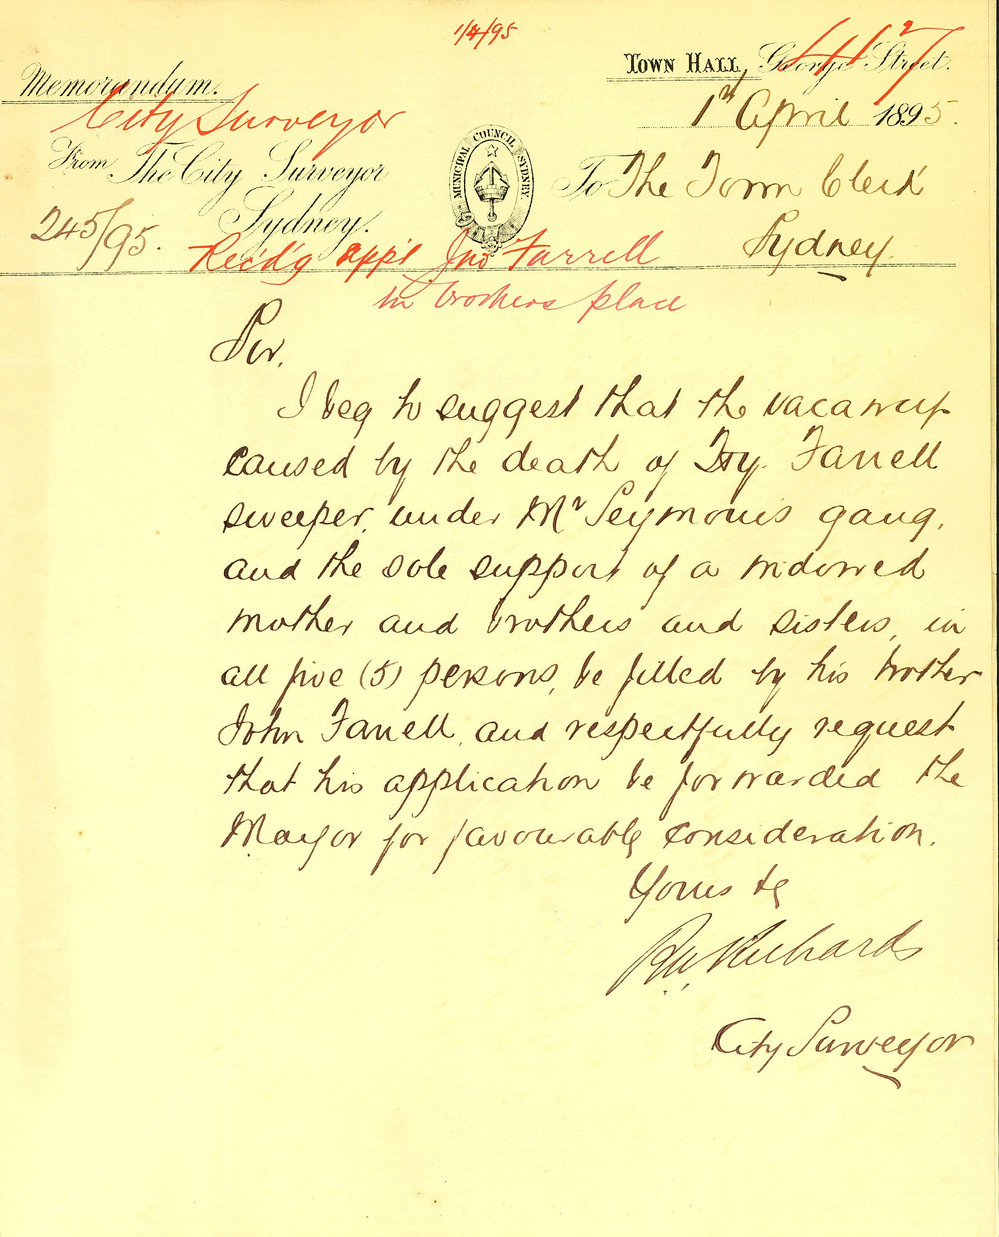 1/4/95
Town Hall, George Street.
Memorandum.
City Surveyor
1st April 1895.
From The City Surveyor
Sydney.
MUNICIPAL COUNCIL SYDNEY
To The Town Clerk
Sydney
245/95.
Rec'dg app't Jno Farrell
in brothers place
Sir,
I beg to suggest that the vacancy
caused by the death of Farrell
sweeper, under Mr Seymour's gang,
and the sole support of a widowed
mother and brothers and sisters, in
all five (5) persons, be filled by his brother
John Farrell, and respectfully request
that his application be forwarded the
Mayor for favourable consideration.
Yours &c
RW. Richards
City Surveyor